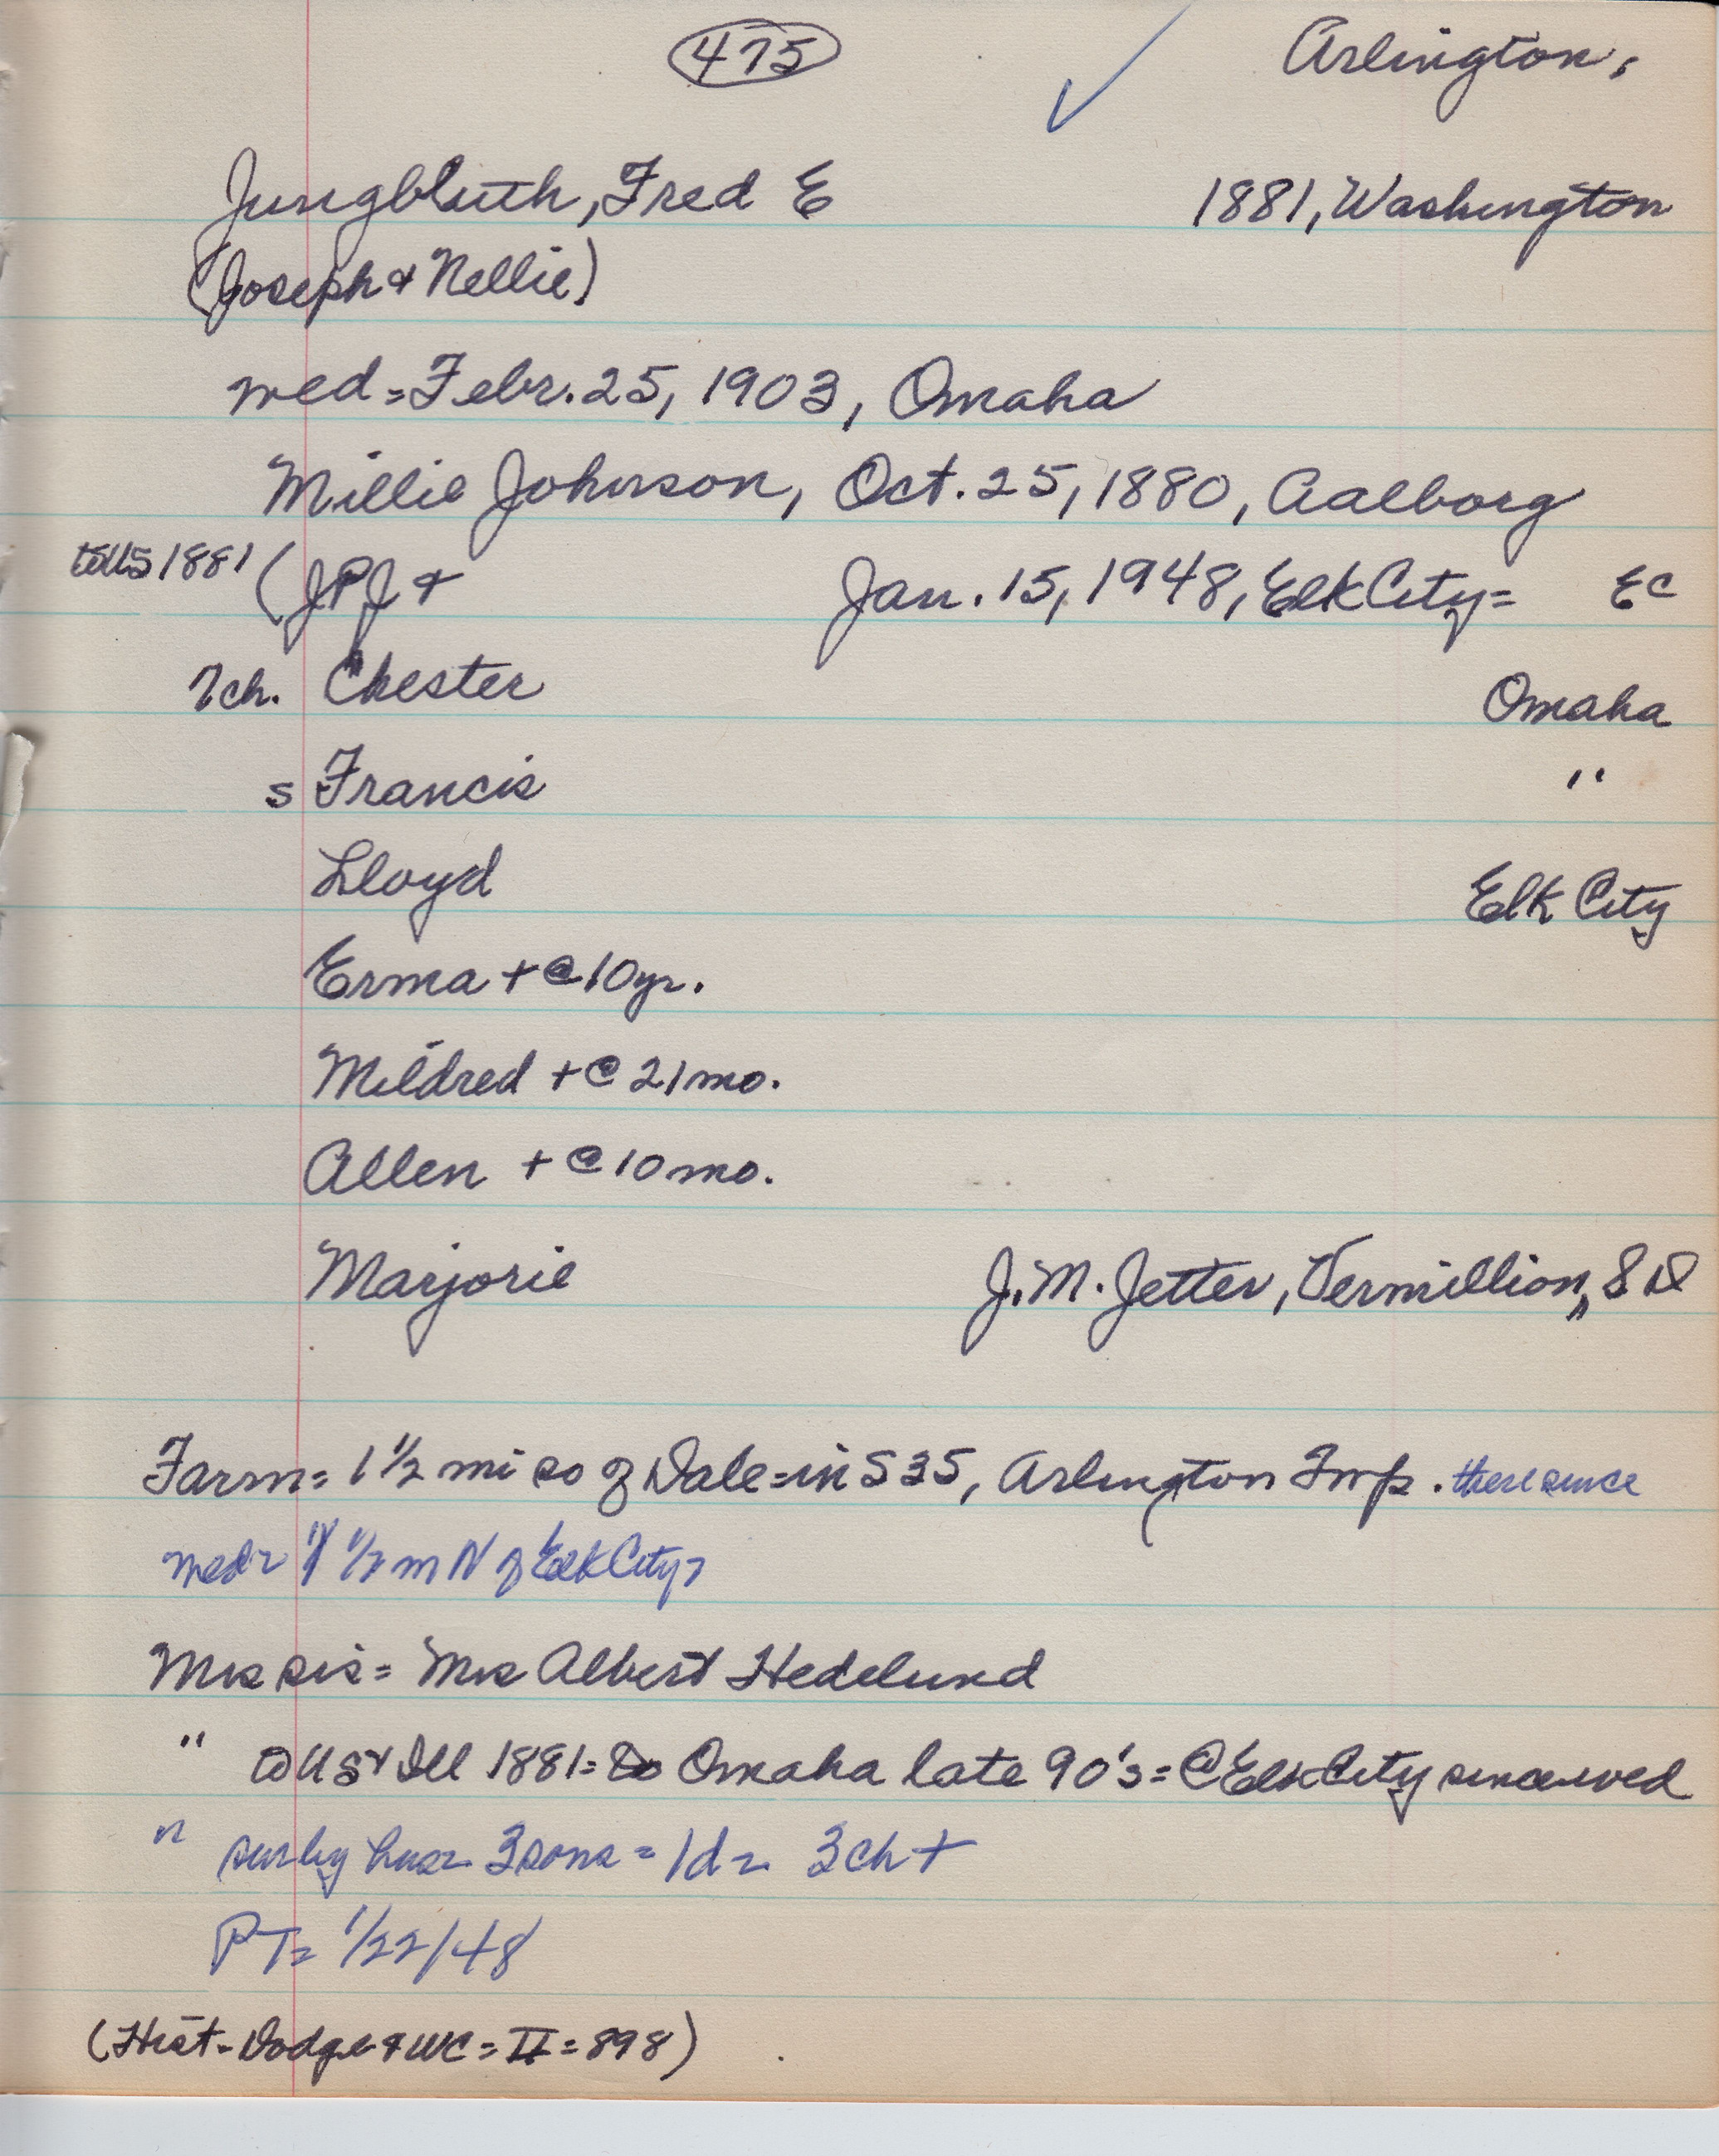 475
Arlington,
Jungbluth, Fred E 1881, Washington
(Joseph & Nellie)
wed = Febr. 25, 1903, Omaha
Millie Johnson, Oct. 25, 1880, Aalborg
to US 1881 (JPJ + Jan. 15, 1948, Elk City = EC
7ch. Chester Omaha
s Francis "
Lloyd Elk City
Erma + @ 10 yr.
Mildred + @ 21 mo.
Allen + @ 10 mo.
Marjorie J. M. Jetter, Vermillion, S D
Farm = 1 1/2 mi so of Dale = in S 35, Arlington Twp. there since
wed = 1 1/2 m N of Elk City =
Mrs sis = Mrs Albert Hedelund
" to US & Ill 1881 = to Omaha late 90's = @ Elk City since wed
" sur by hus = 3 sons = 1 d = 3 ch +
PT = 1/22/48
(Hist - Dodge & WC = II = 898)